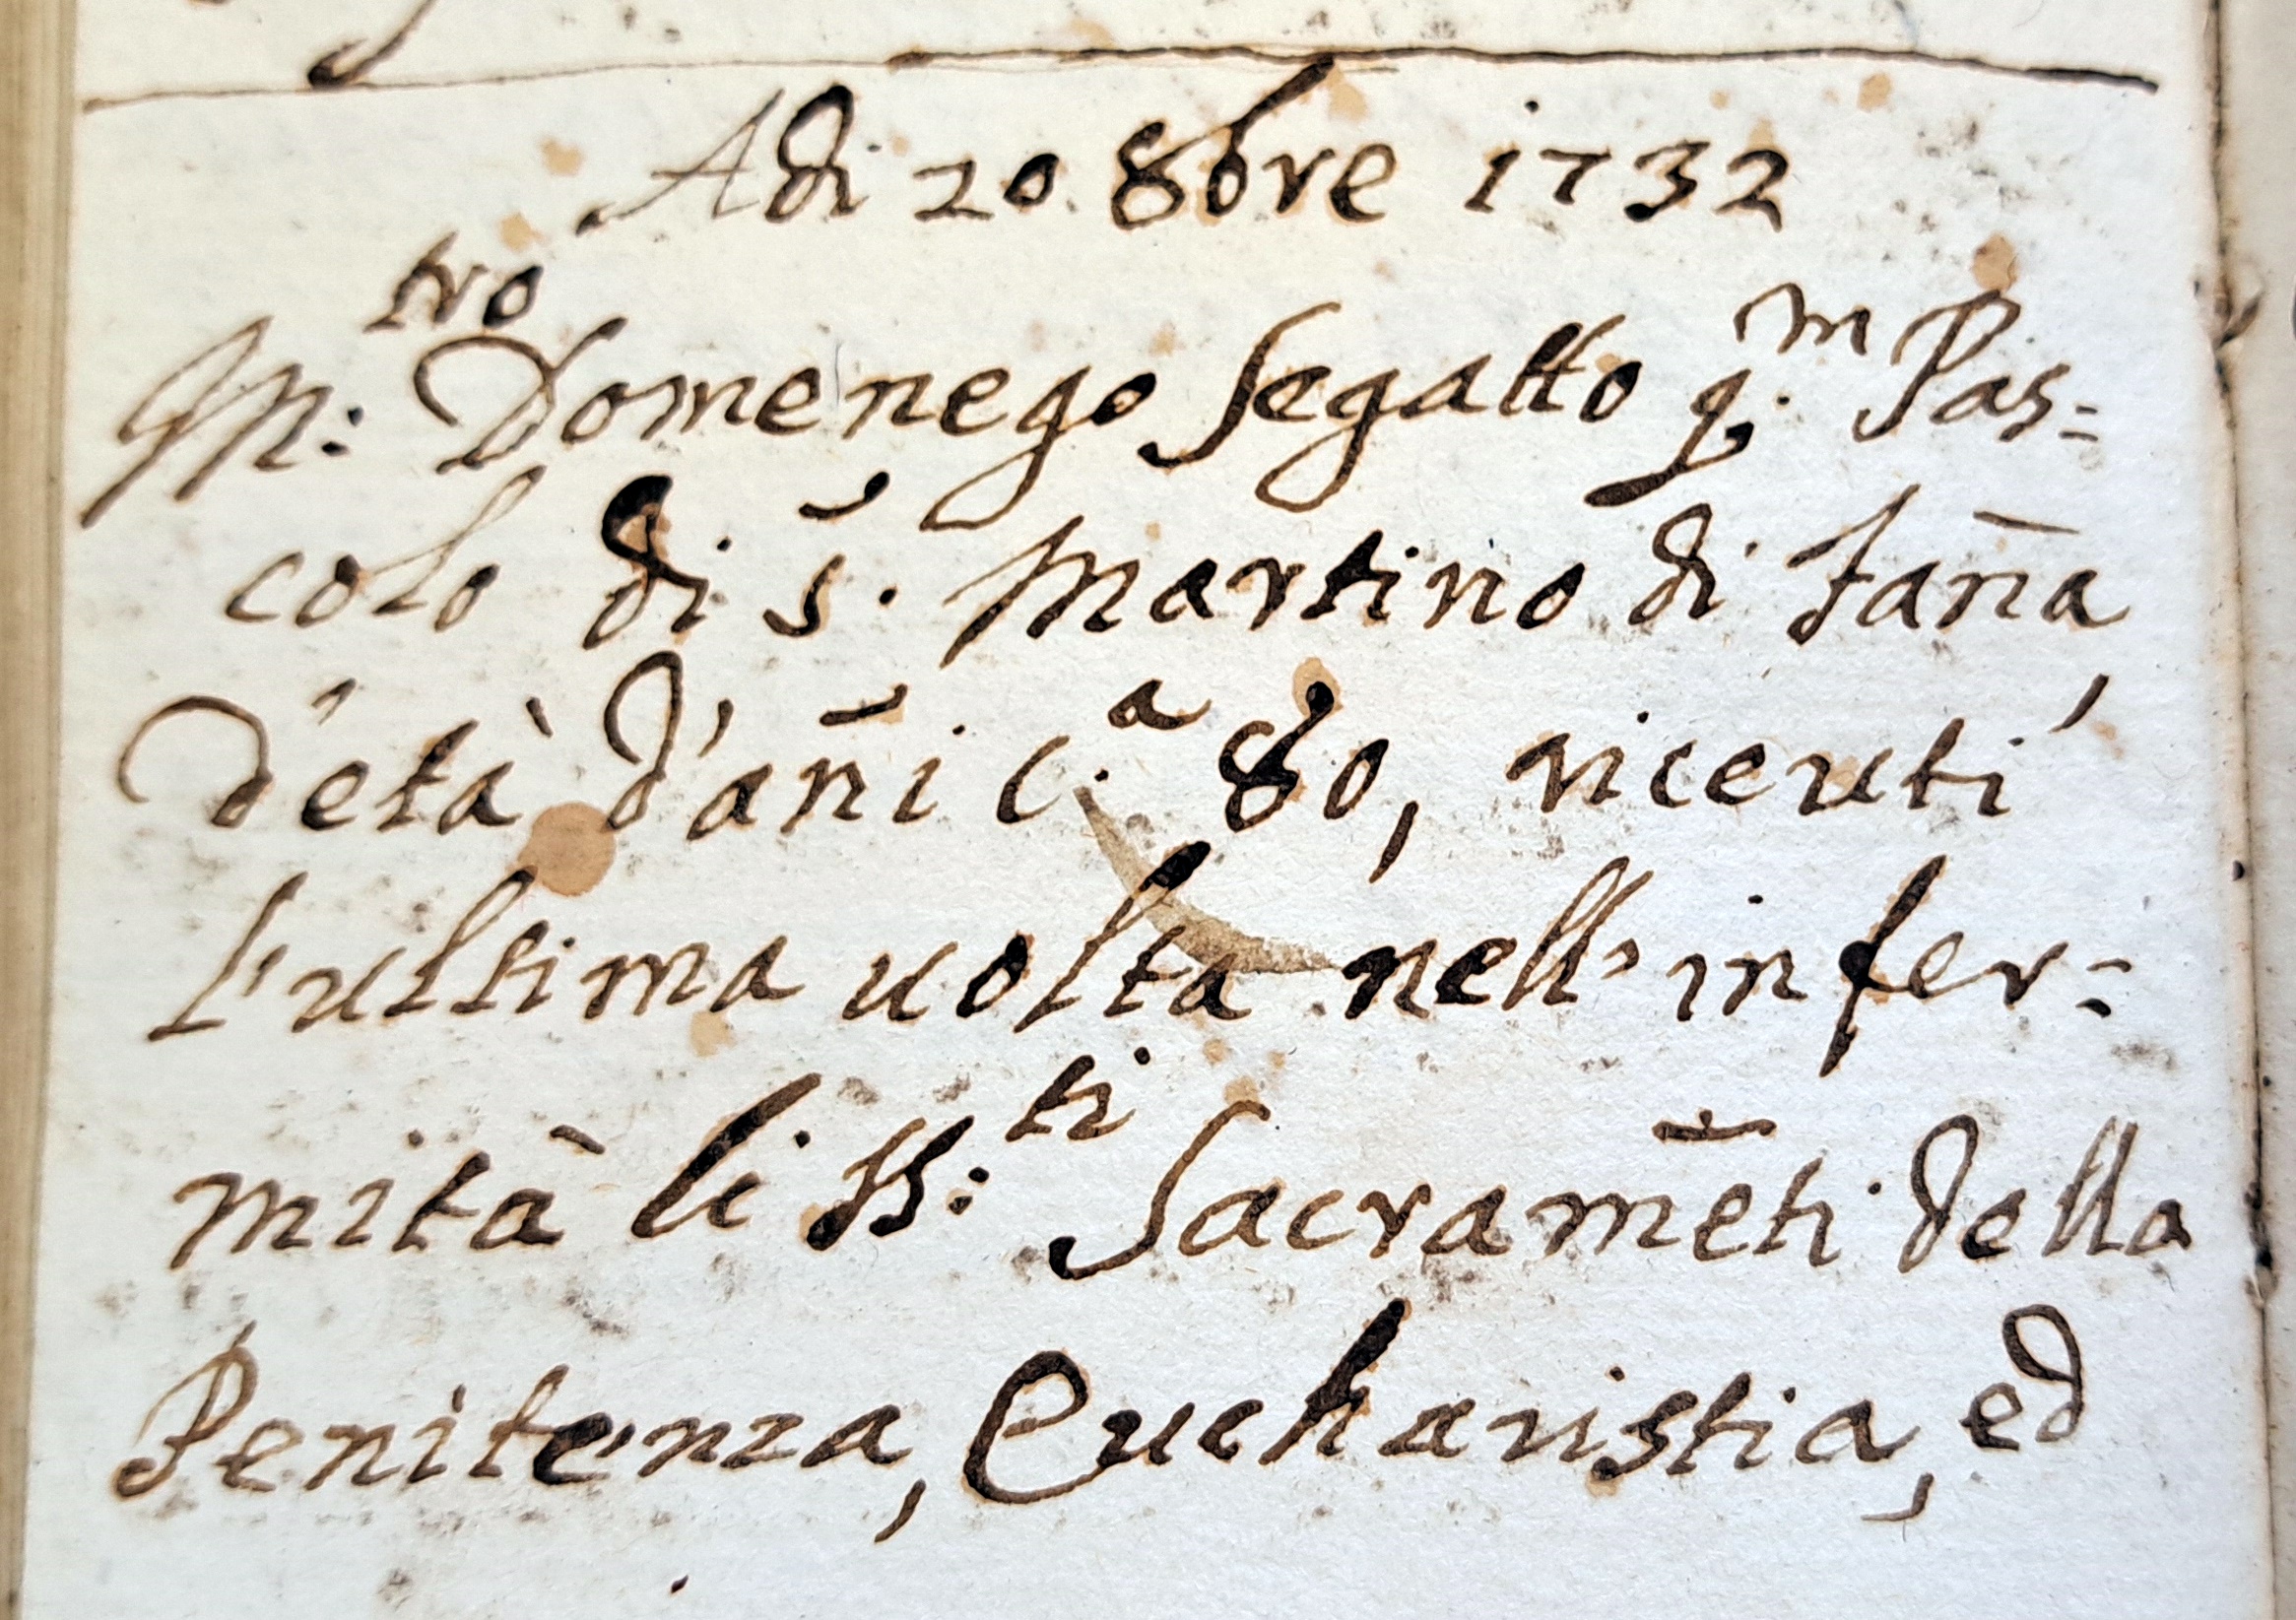 Adi 20 8bre 1732
M:tro Domenego Segatto q.m Pas=
colo di S. Martino di Faña,
d'età d'añi c.a 80, riceuti
l'ultima uolta nell'infer=
mità li SS:ti Sacram̄eti della
Penitenza, Eucharistia, ed